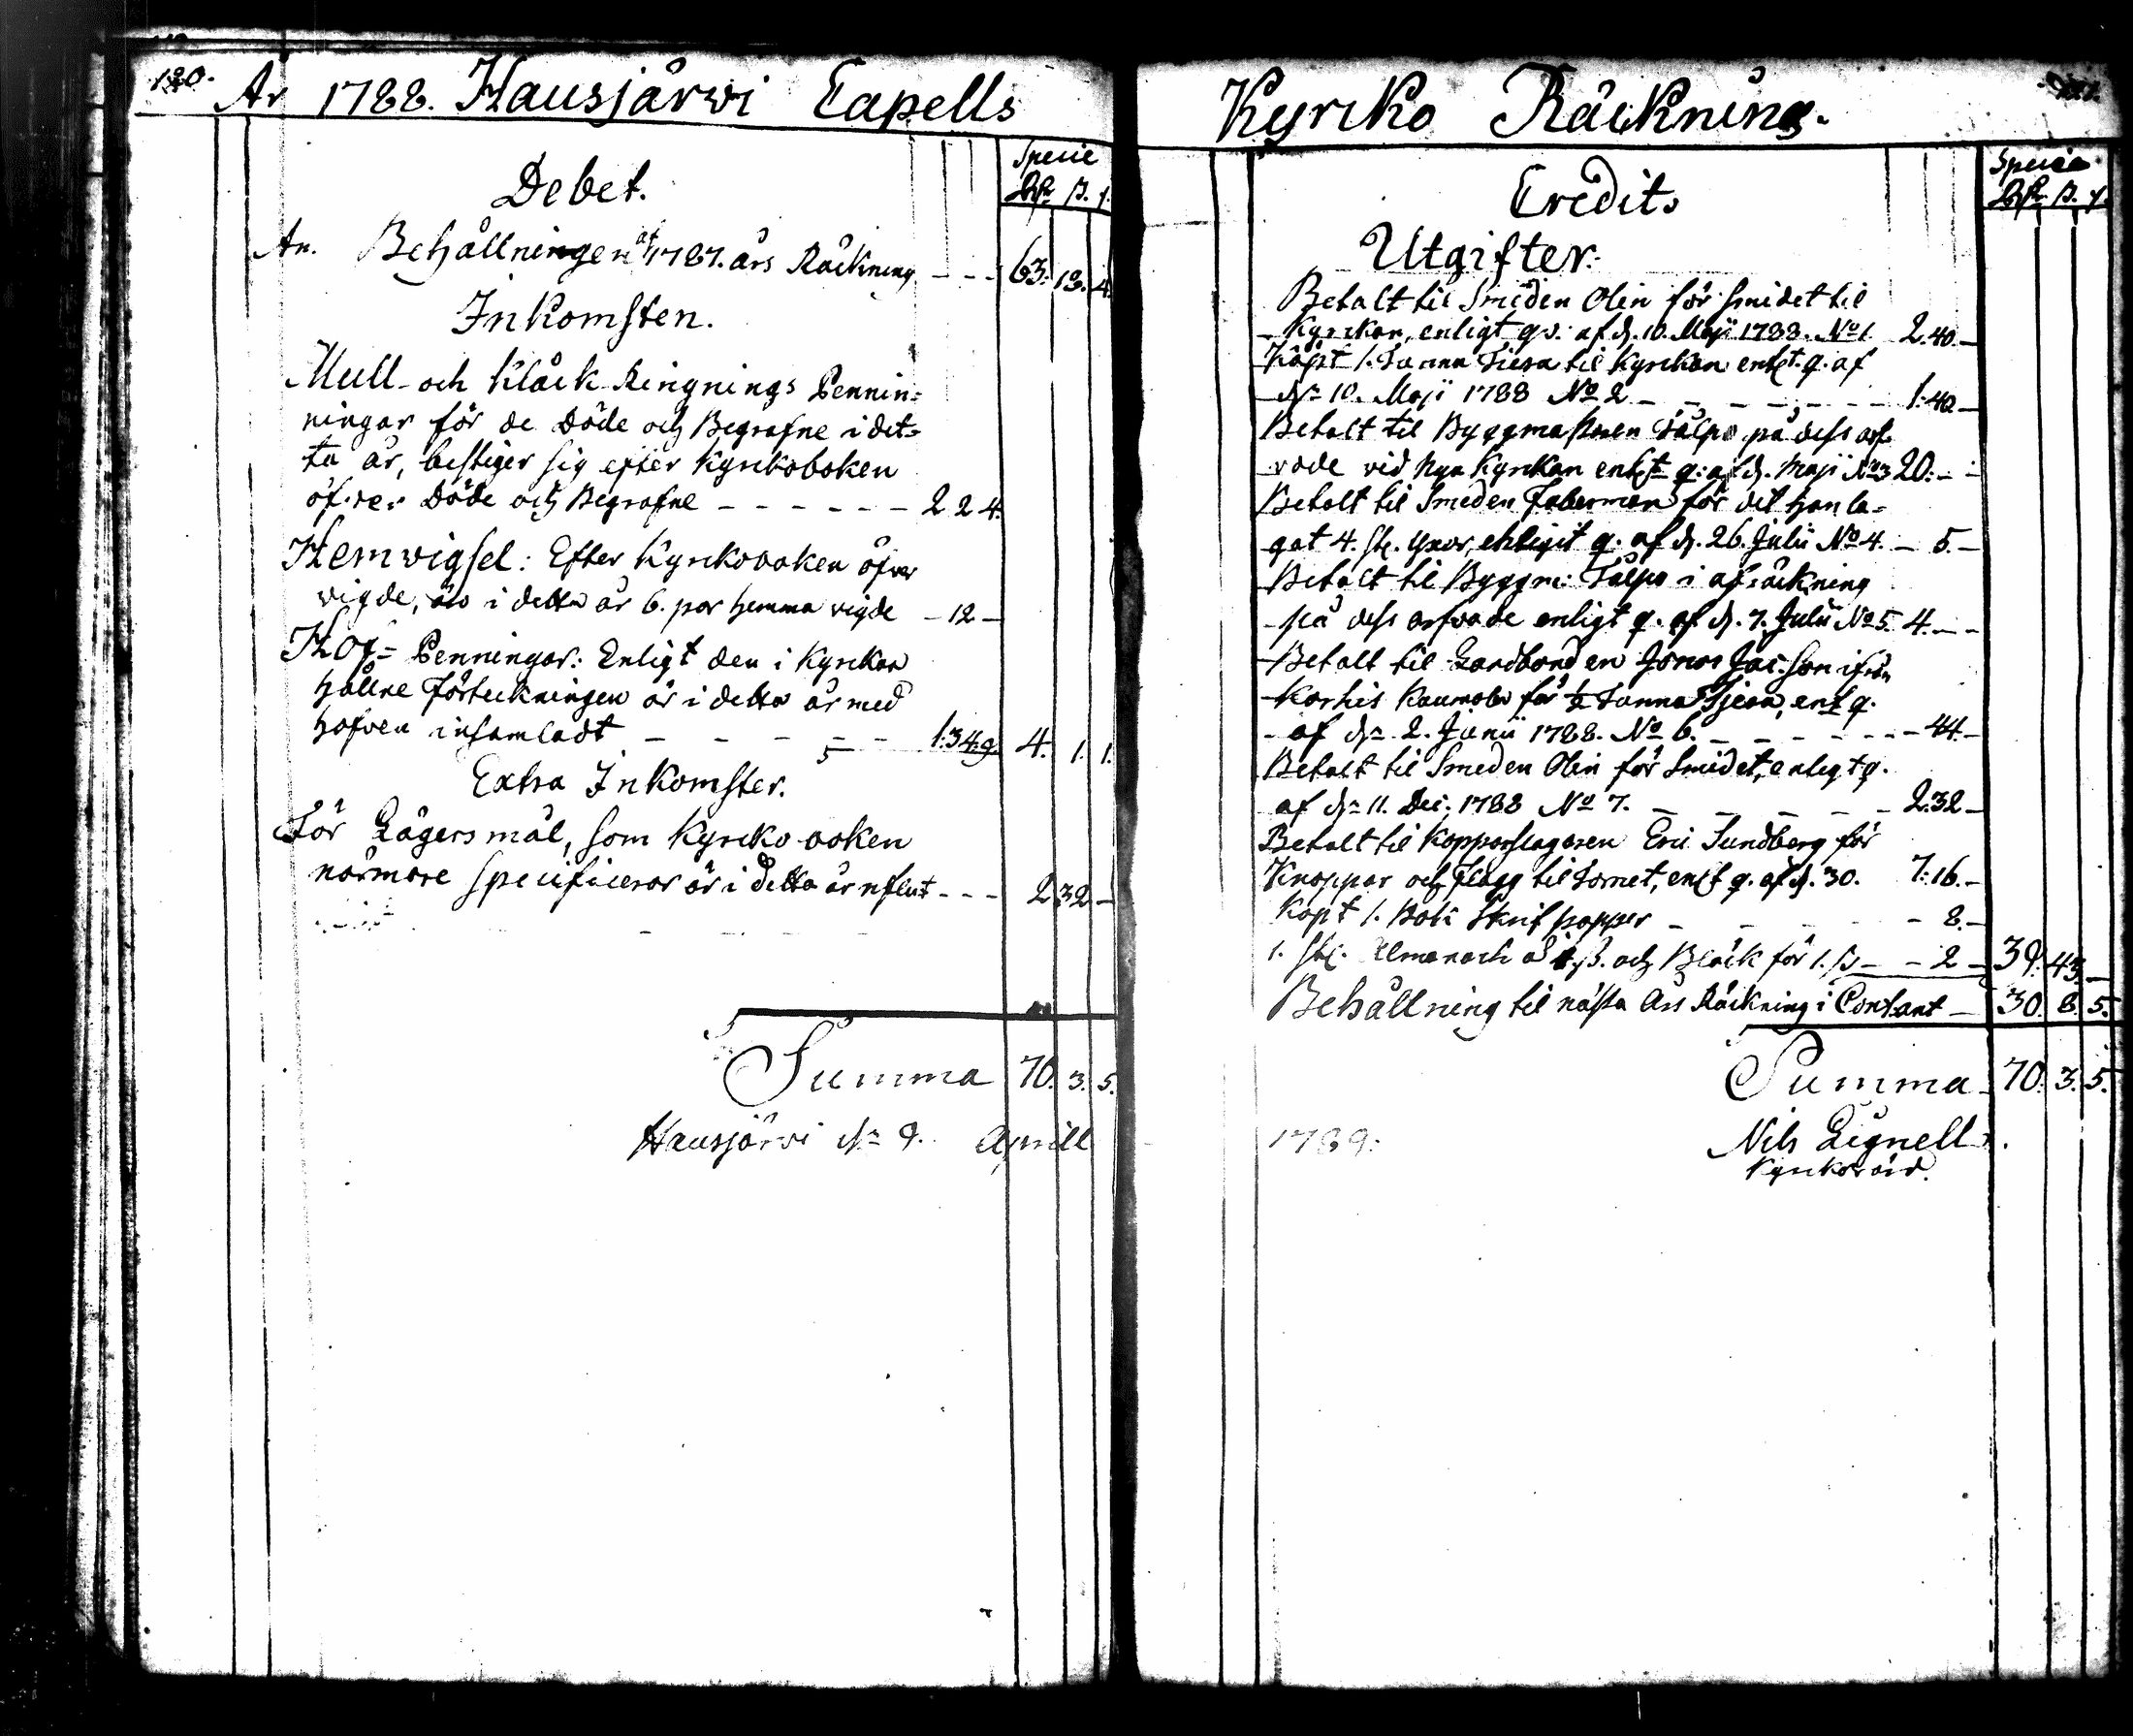 120.
År 1788. Hausjärwi Capells
Specie
Rdr ß. r.
Debet.
An. Behållningen af 1787. års Räckning - - - 63. 18. 4.
Inkomsten.
Mull- och Kläck Ringnings Pennin=
ningar för de Döde och Begrafne i det=
ta år, bestiger sig efter Kyrckoboken
öfver Döde och Begrafne - - - - - - 2 2 4.
Hemvigsel: Efter Kyrckoboken öfver
vigde, äro i detta år 6. par hemma vigde - 12 -
Hof= Penningar: Enligt den i Kyrckan
hållne Förteckningen är i detta år med
hofven insamladt - - - - - 1. 34. 9. 4. 1. 1.
Extra Inkomster.
För Lägersmål, som Kyrckoboken
närmare specificerar är i detta år influt - - - 2 32 -
Summa 70. 3. 5.
Hausjärvi dn 9. Aprill
Kyrcko Räckning.
Specie
Rdr ß. r.
Credit.
Utgifter.
Betalt til Smeden Olin för smidet til
Kyrckan, enligt qv: af d. 10. Maji 1788. No 1 2. 40. -
Köpt 1. Tunna Tiera til Kyrckan enlt. q. af
dn 10. Maji 1788 No 2 - - - - - - 1. 40 -
Betalt til Byggmästaren Tålpo på dess arf-
vode vid nya Kyrckan enlt q: af d. Maji No 3 20. - -
Betalt til Smeden Faberman för det han la-
gat 4. st. yxor, enligit q. af d. 26. Julii No 4. - 5. -
Betalt til Byggm: Tålpo i afräckning
på dess arfvode enligt q. af d. 7. Julii No 5. 4. - -
Betalt til Landbonden Jonas Jac. Son ifrån
Karhis Kaumola för ½ Tunna Tjera, enl q.
af dn 2. Junii 1788. No 6. - - - - - - 44. -
Betalt til Smeden Olin för Smidet, enligt q.
af dn 11. Dec. 1788 No 7. - - - - - 2. 32 -
Betalt til Kopparslagaren Eric Sundberg för
Knoppar och Flagg til Tornet, enlt q. af d. 30. 7. 16. -
Köpt 1. Bok Skrifpapper - - - - - 8. -
1. st. Almanach à 1 ß. och Bläck för 1. ß - - 2 - 39. 43. -
Behållning til nästa Års Räckning i Contant - 30. 8. 5.
Summa 70. 3. 5.
1789. Nils Lignell
Kyrkovärd.